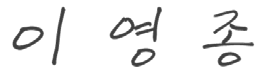 이 영 종